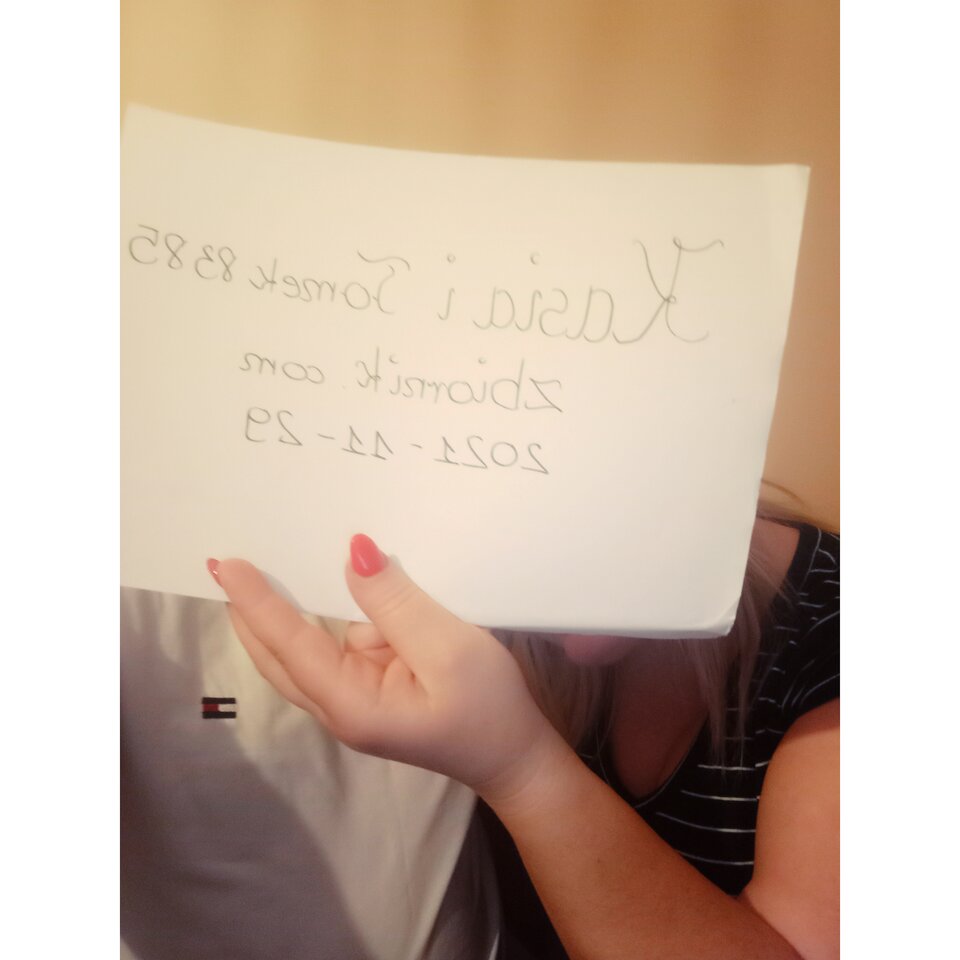 Kasia i Tomek 8385
zbiornik.com
2021-11-29